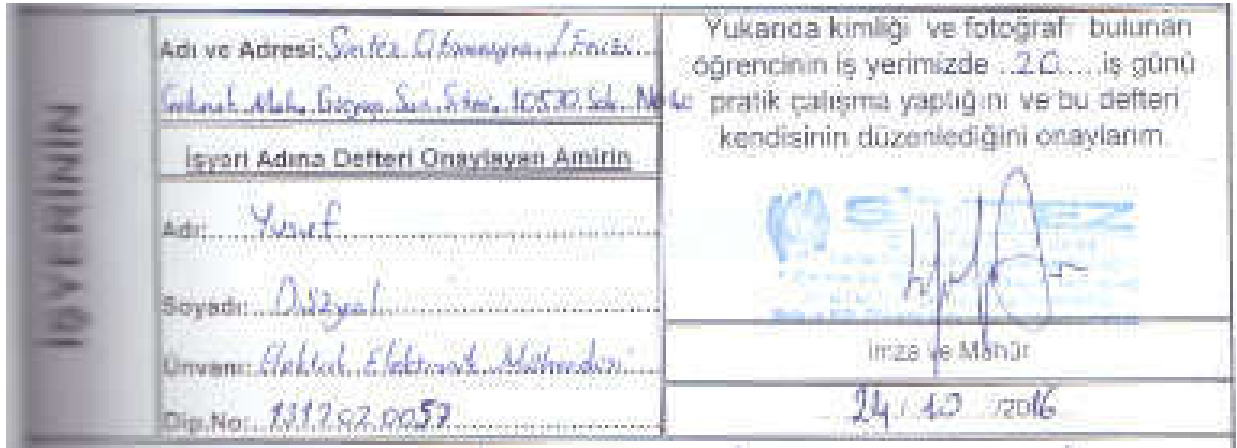 İŞYERİNİN
Adı ve Adresi: Sintez Otomasyon /
Mah. San. Sitesi. 10530 Sok. No
İşyeri Adına Defteri Onaylayan Amirin
Adı: Yusuf
Soyadı: Düzyol
Ünvanı: Elektrik Elektronik Mühendisi
Dip.No: 1317.02.0057
Yukarıda kimliği ve fotoğrafı bulunan
öğrencinin iş yerimizde ..20.... iş günü
pratik çalışma yaptığını ve bu defteri
kendisinin düzenlediğini onaylarım.
İmza ve Mühür
24 / 10 /2016